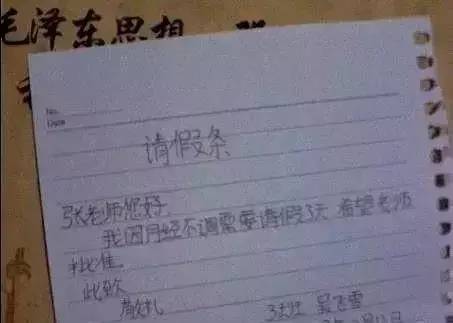 毛泽东思想
No.
Date
请假条
张老师您好
我因月经不调需要请假3天 希望老师
批准.
此致
敬礼
吴飞雪